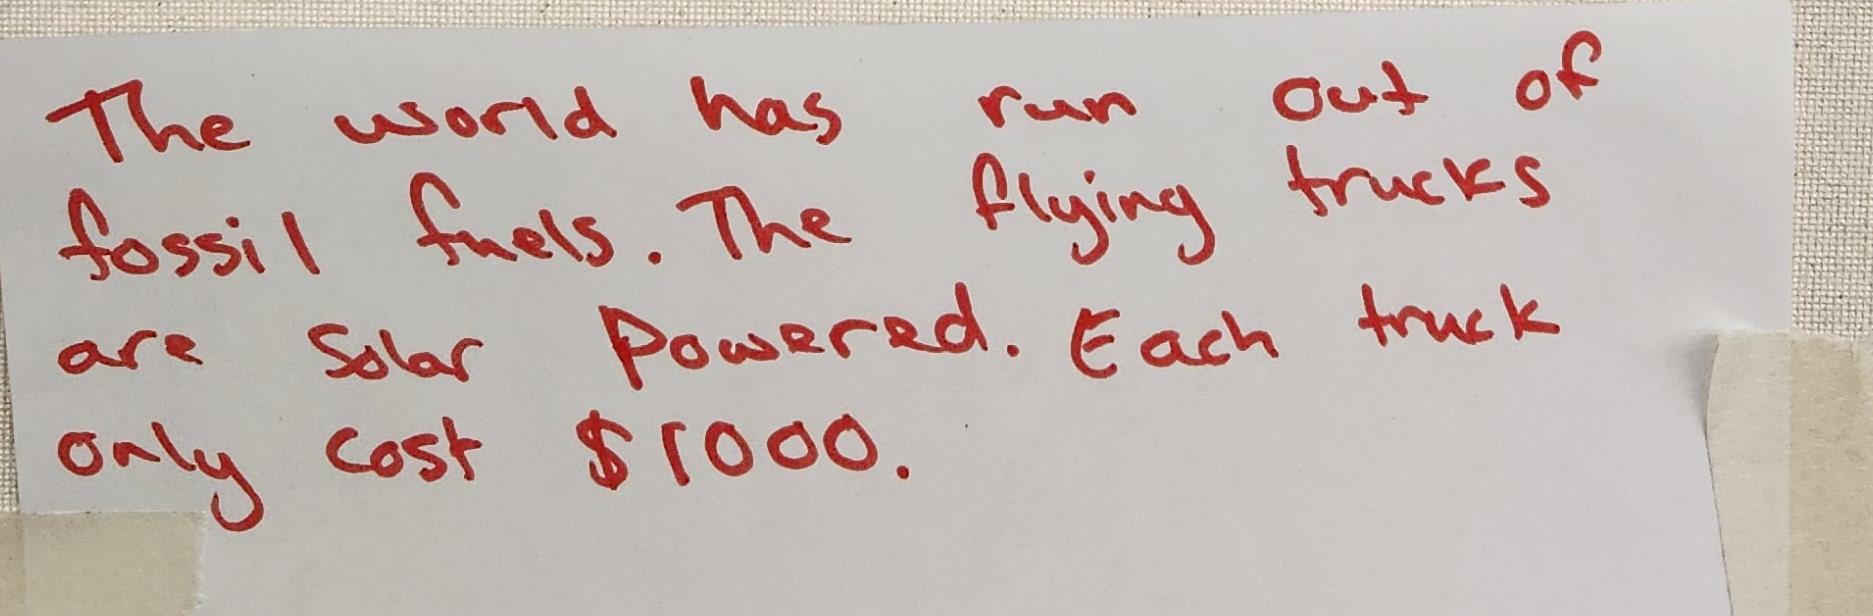 The world has run out of
fossil fuels. The flying trucks
are solar powered. Each truck
only cost $1000.